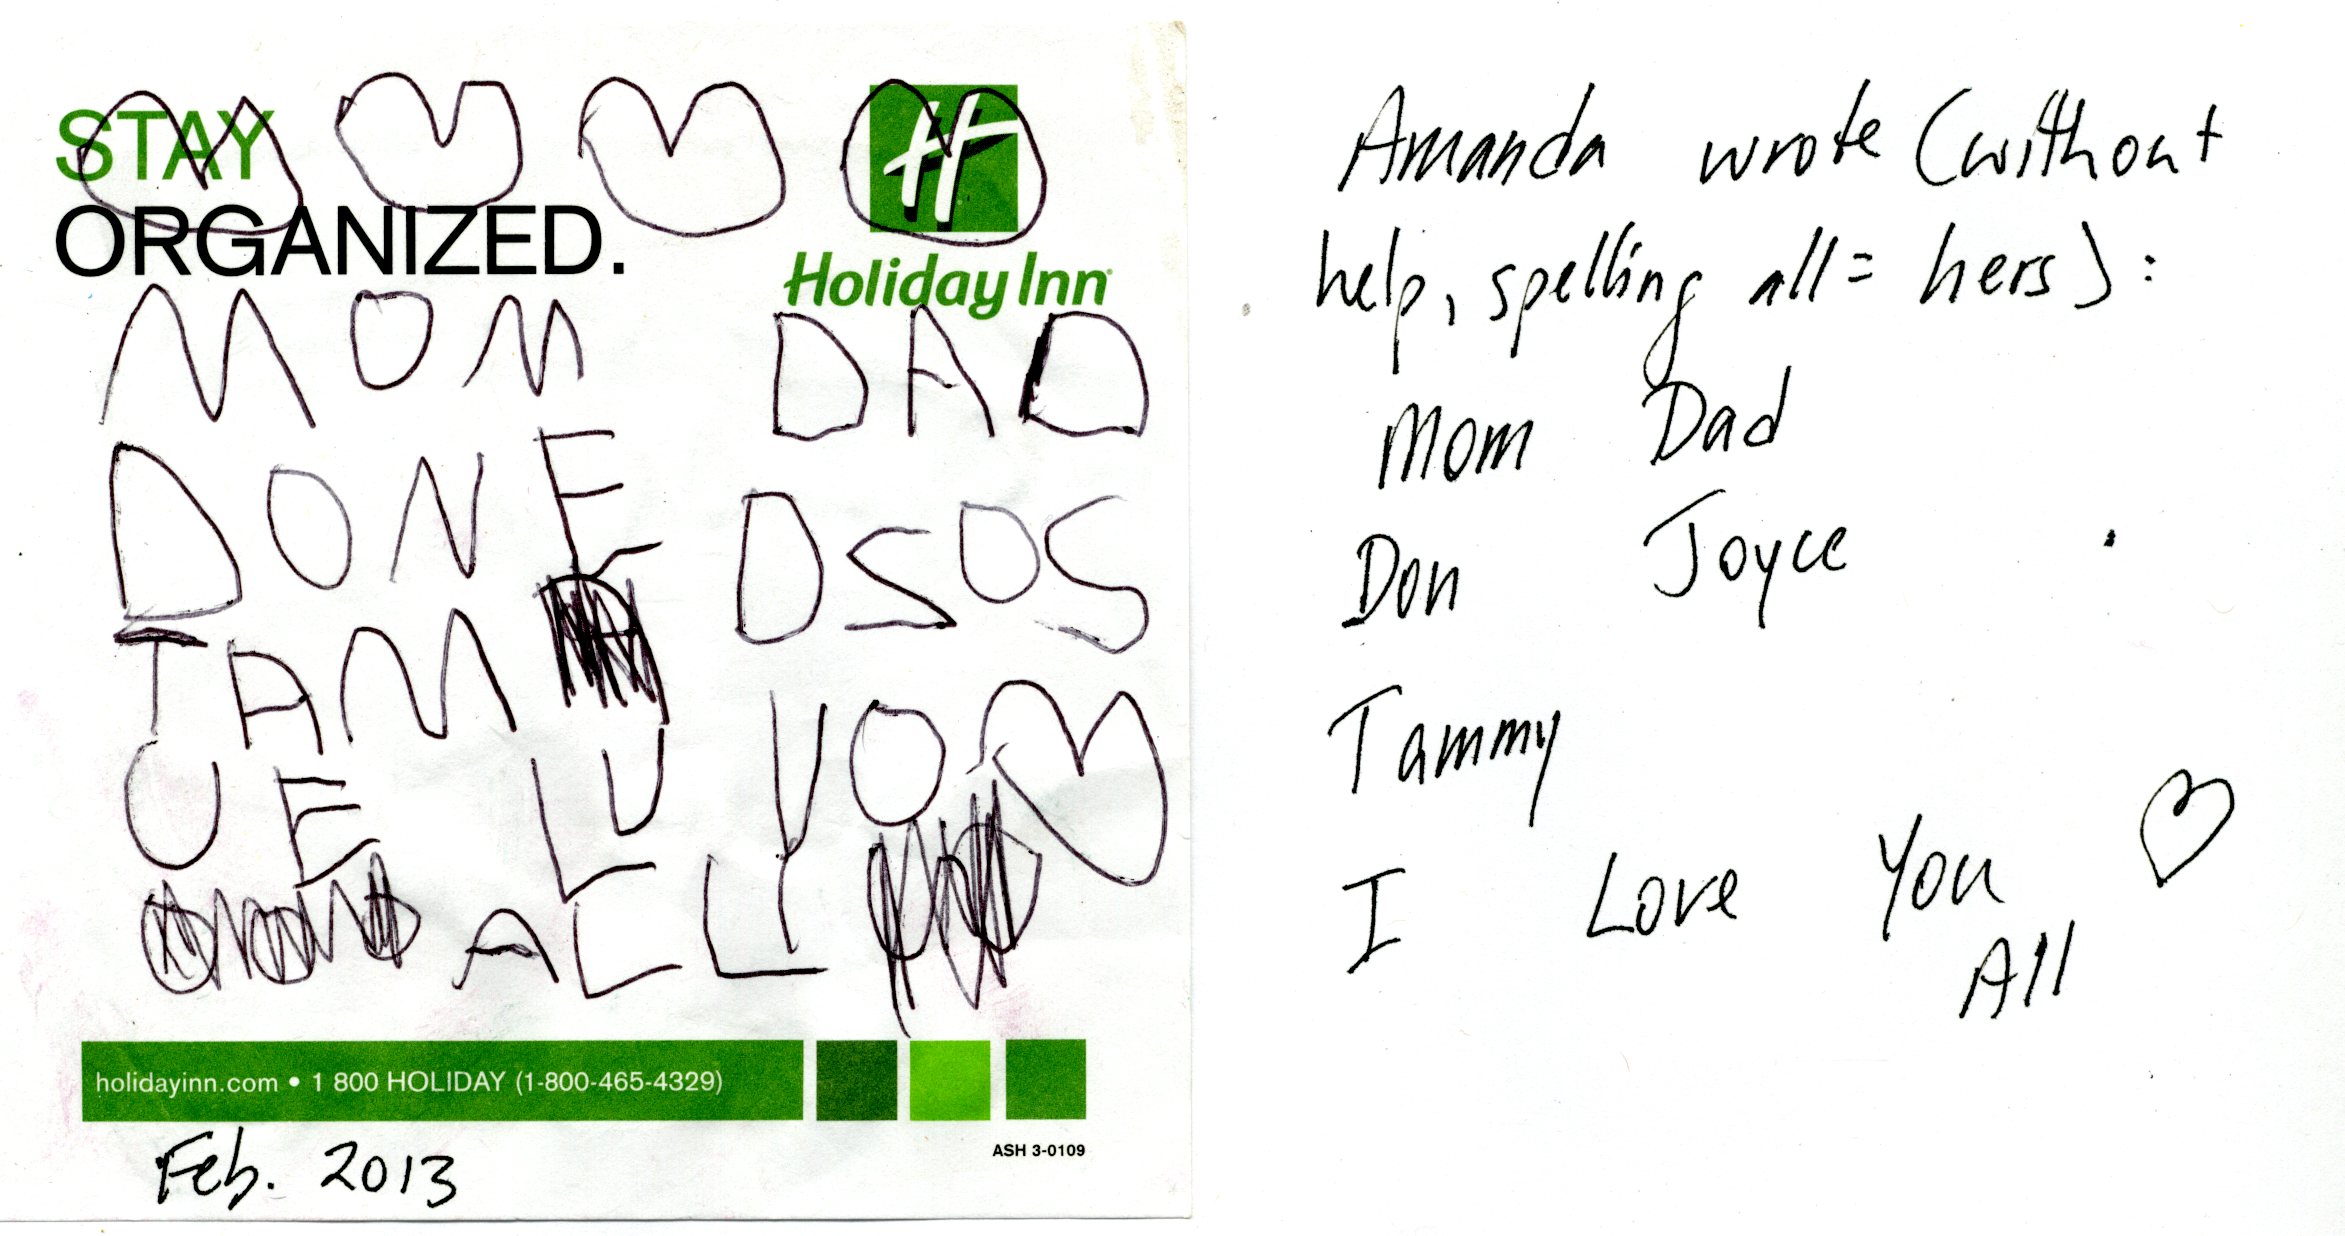 STAY
ORGANIZED.
Holiday Inn
MOM DAD
DONE DSDS
TAM
UE LU YO
ALL
holidayinn.com • 1 800 HOLIDAY (1-800-465-4329)
ASH 3-0109
Feb. 2013
Amanda wrote (without
help, spelling all = hers):
Mom Dad
Don Joyce
Tammy
I Love You
All